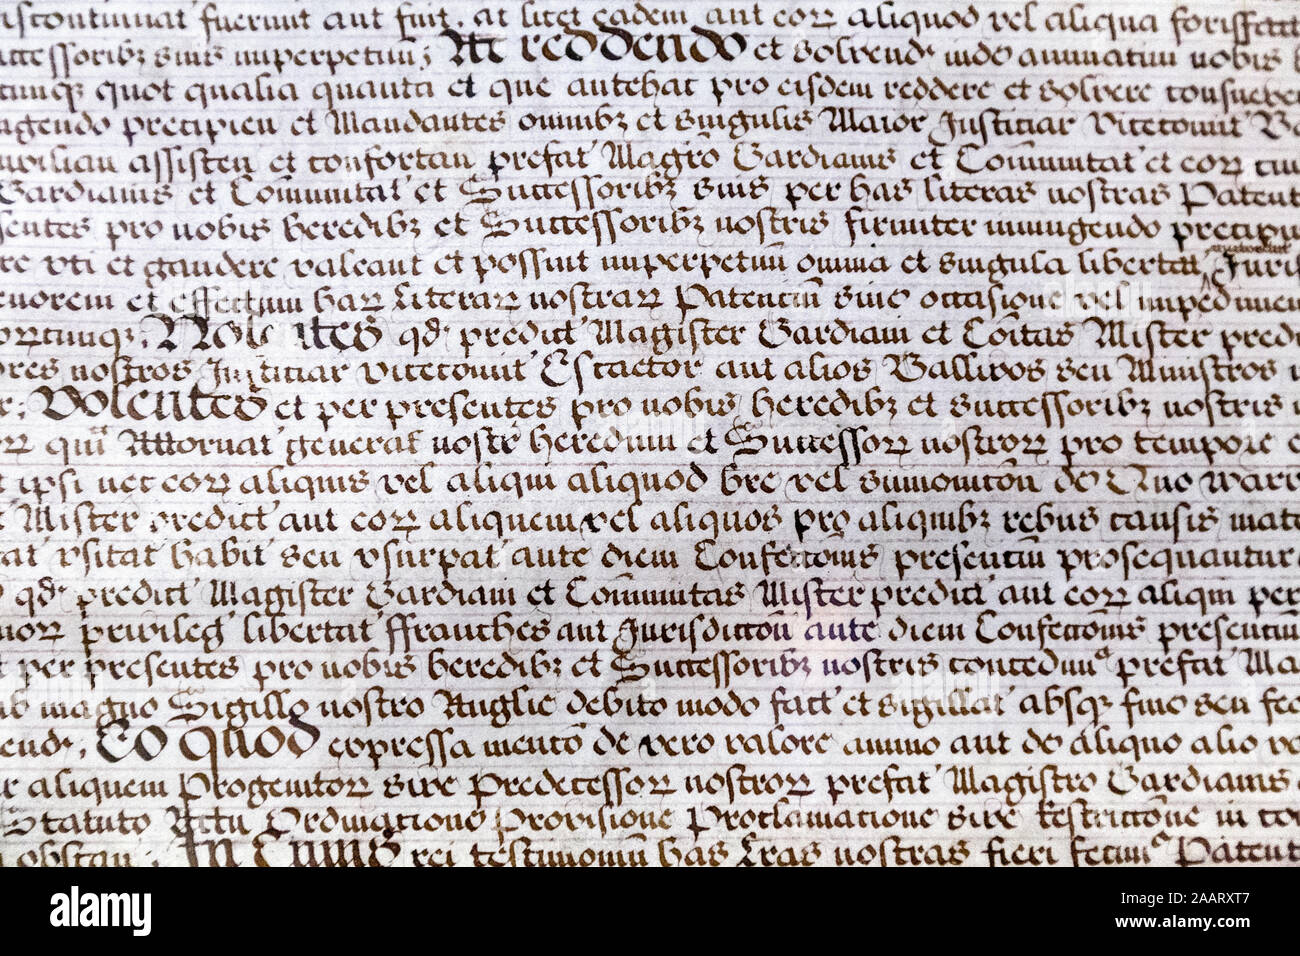 iscontinuat fuerunt aut fuit, at licet eadem aut eorꝝ aliquod vel aliqua forisfet
uccessoribꝫ suis imperpetuū; Ac reddendo et solvend inde annuatim nobis h
cumqꝫ quot qualia quanta et que antehac pro eisdem reddere et solvere consueve
ngendo precipien et Mandantes omnibꝫ et singulis Maior Justiciar Vicecomit B
uxilian assisten et confortan prefat Magr̄o Gardianis et Com̄unitat et eorꝝ cui
Gardianis et Com̄unitat et Successoribꝫ suis per has literas nostras Patent
sentes pro nobis heredibꝫ et Successoribꝫ nostris firmiter iniungendo precipi
re uti et gaudere valeant et possint imperpetuū omnia et singula libertat Juris
enorem et effectum harꝝ Literarꝝ nostrarꝝ Patenciū sine occasione vel impedimen
orrcumqꝫ; Nolentes qd predict Magister Gardiani et Com̄itas Mister predi
ores nostros Justiciar vicecomit Escaetor aut alios Ballivos seu Ministros n
r; Volentes et per presentes pro nobis heredibꝫ et successoribꝫ nostris
orꝝ quā Attornat general nostr heredum et Successorꝝ nostrorꝝ pro tempore e
t ipsi nec eorꝝ aliquis vel aliqui aliquod bre vel sumonicōn de Quo warr
t Mister predict aut eorꝝ aliquem vel aliquos pro aliquibꝫ rebus causis mate
tat usitat habit seu usurpat ante diem Confeccōnis presentiū prosequantur
qd predict Magister Gardiani et Com̄unitas Mister predict aut eorꝝ aliqui per
uorꝝ privileg libertat ffranches aut Jurisdiccōn ante diem Confeccōnis presentiū
t per presentes pro nobis heredibꝫ et Successoribꝫ nostris concedimꝰ prefat Ma
ub magno Sigillo nostro Anglie debito modo fact et sigillat absqꝫ fine seu feo
end; Eo quod expressa mencō de vero valore annuo aut de aliquo alio va
r aliquem Progenitorꝝ sive Predecessorꝝ nostrorꝝ prefat Magistro Gardianis
Statuto Actu Ordinacione Provisione Proclamacione sive Restriccōne in con
obstan; In Cuius rei testimoniū has Lras nostras fieri fecimꝰ Patent
alamy
Image ID: 2AARXT7
www.alamy.com